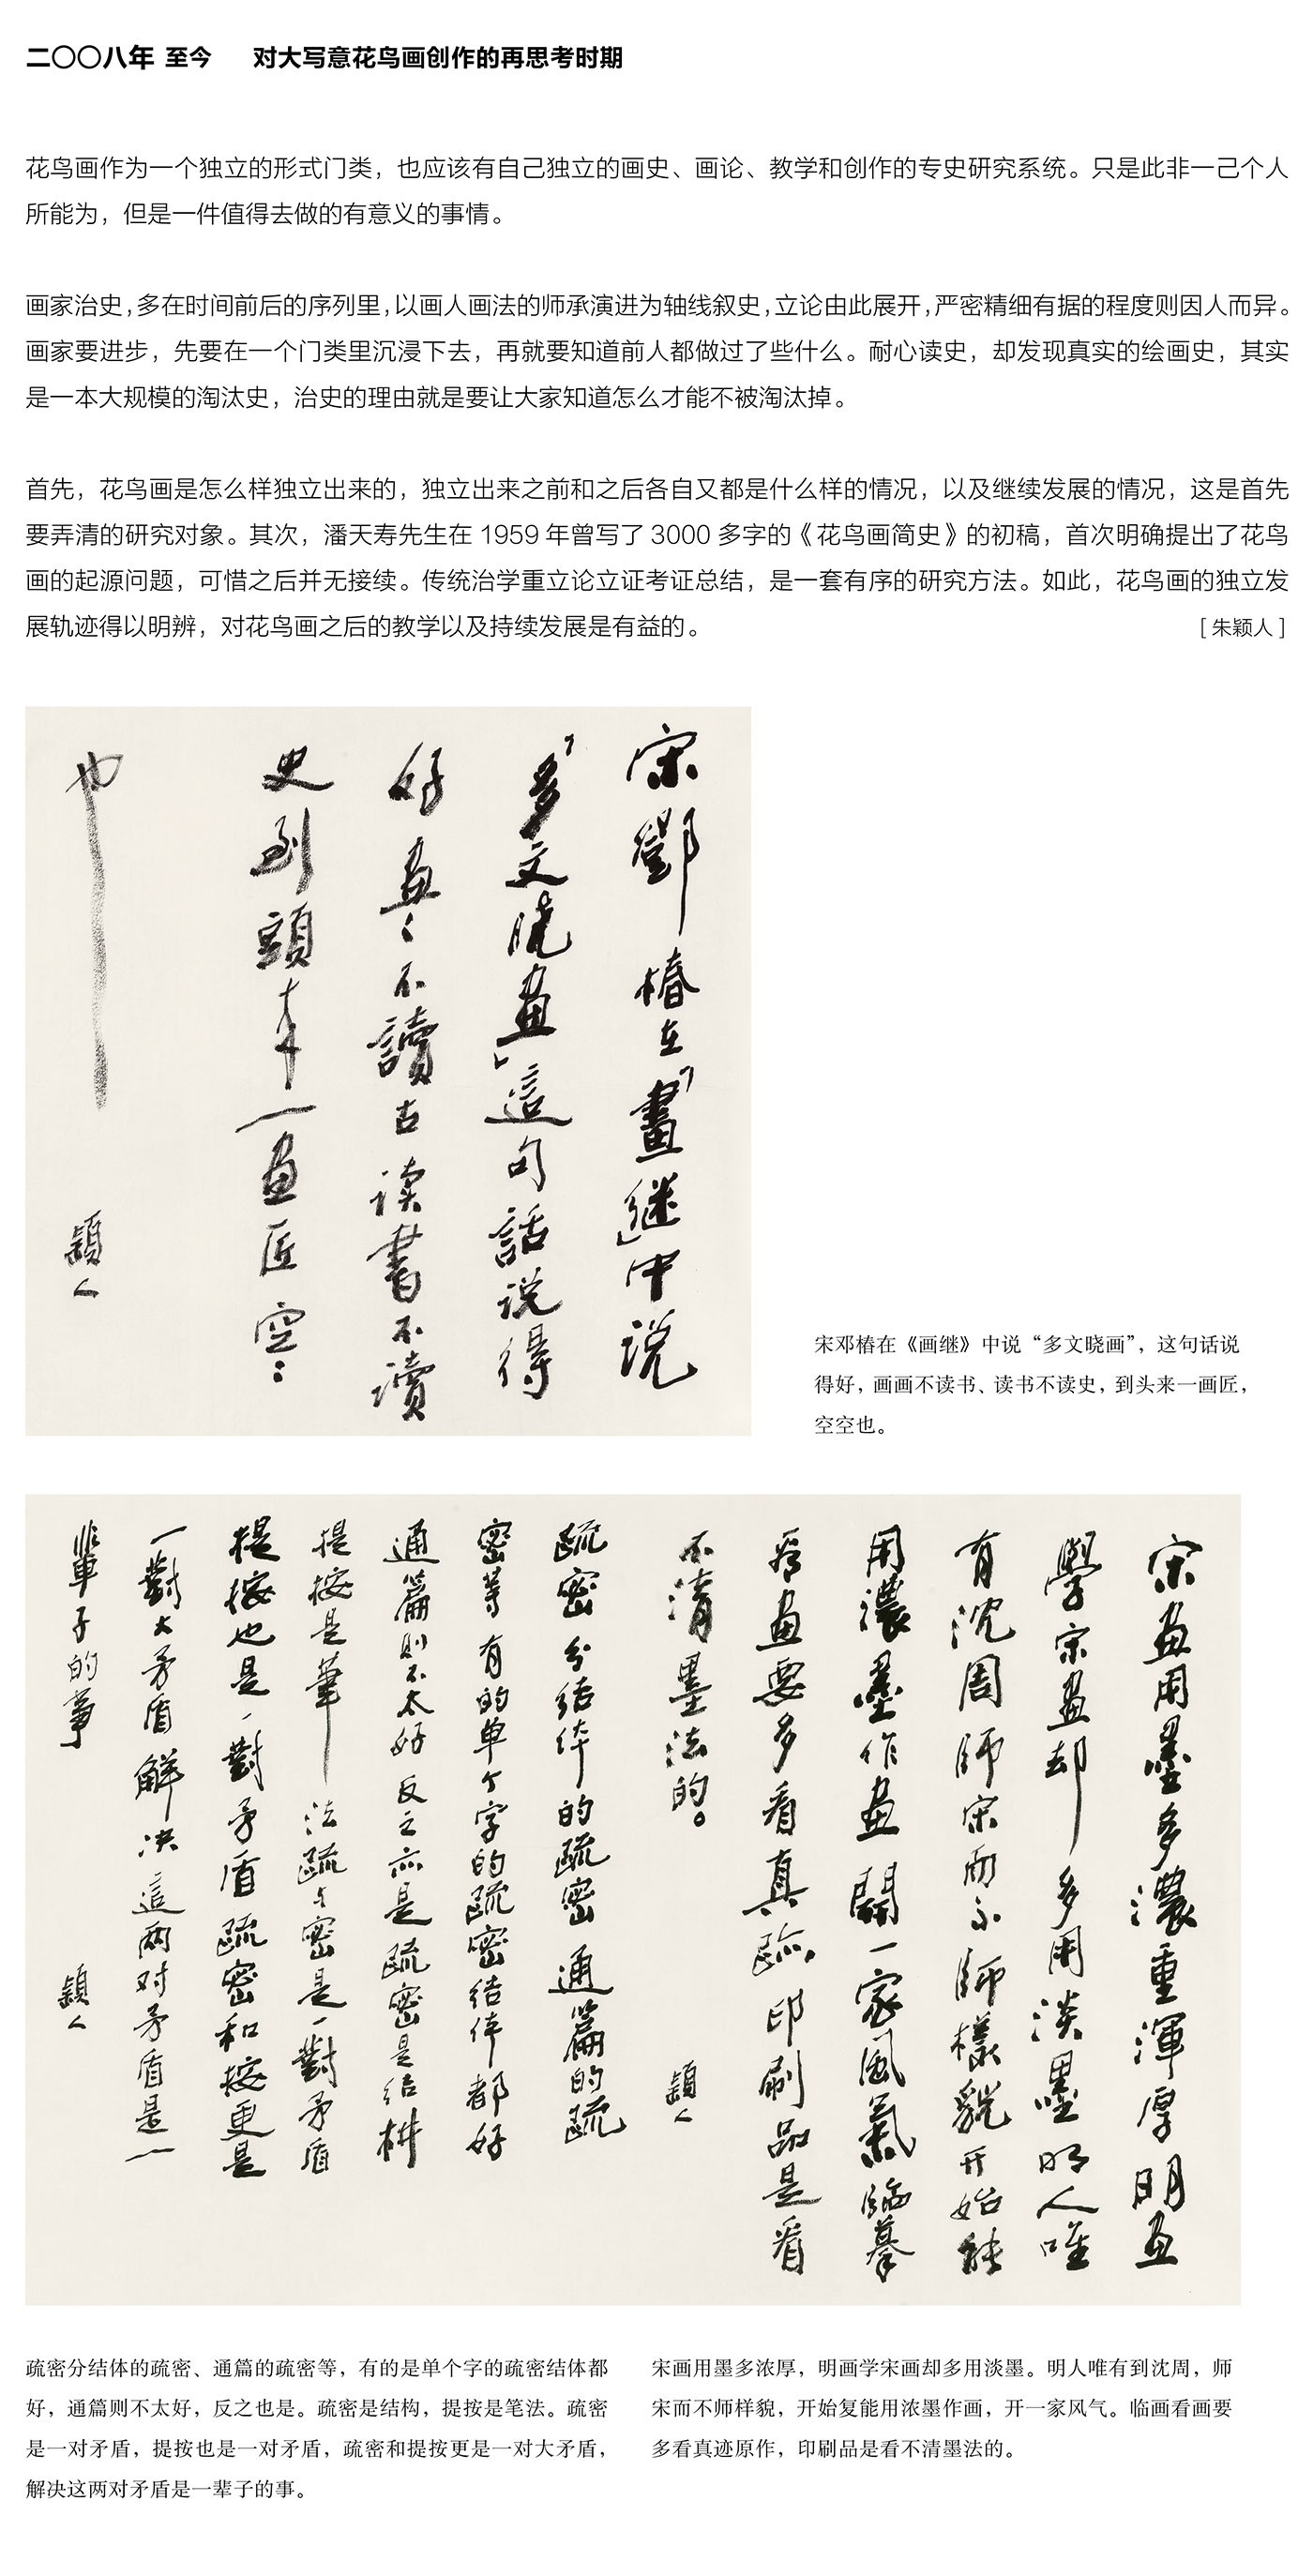 二〇〇八年 至今 对大写意花鸟画创作的再思考时期
花鸟画作为一个独立的形式门类，也应该有自己独立的画史、画论、教学和创作的专史研究系统。只是此非一己个人
所能为，但是一件值得去做的有意义的事情。
画家治史，多在时间前后的序列里，以画人画法的师承演进为轴线叙史，立论由此展开，严密精细有据的程度则因人而异。
画家要进步，先要在一个门类里沉浸下去，再就要知道前人都做过了些什么。耐心读史，却发现真实的绘画史，其实
是一本大规模的淘汰史，治史的理由就是要让大家知道怎么才能不被淘汰掉。
首先，花鸟画是怎么样独立出来的，独立出来之前和之后各自又都是什么样的情况，以及继续发展的情况，这是首先
要弄清的研究对象。其次，潘天寿先生在 1959 年曾写了 3000 多字的《花鸟画简史》的初稿，首次明确提出了花鸟
画的起源问题，可惜之后并无接续。传统治学重立论立证考证总结，是一套有序的研究方法。如此，花鸟画的独立发
展轨迹得以明辨，对花鸟画之后的教学以及持续发展是有益的。
［朱颖人］
宋鄧椿在「畫继」中说
「多文曉畫」這句話说得
好画〻不讀古读書不讀
史到頭来一画匠空〻
也
穎人
宋邓椿在《画继》中说“多文晓画”，这句话说
得好，画画不读书、读书不读史，到头来一画匠，
空空也。
宋画用墨多濃重渾厚明画
學宋画却多用淡墨明人唯
有沈周師宋而不師樣貌开始能
用濃墨作画開一家風氣臨摹
看画要多看真跡印刷品是看
不清墨法的。
穎人
疏密分结体的疏密通篇的疏
密等有的单个字的疏密结体都好
通篇则不太好反之亦是疏密是结構
提按是筆法疏与密是一對矛盾
提按也是一對矛盾疏密和提按更是
一對大矛盾解决這两对矛盾是一
輩子的事
穎人
疏密分结体的疏密、通篇的疏密等，有的是单个字的疏密结体都
好，通篇则不太好，反之也是。疏密是结构，提按是笔法。疏密
是一对矛盾，提按也是一对矛盾，疏密和提按更是一对大矛盾，
解决这两对矛盾是一辈子的事。
宋画用墨多浓厚，明画学宋画却多用淡墨。明人唯有到沈周，师
宋而不师样貌，开始复能用浓墨作画，开一家风气。临画看画要
多看真迹原作，印刷品是看不清墨法的。